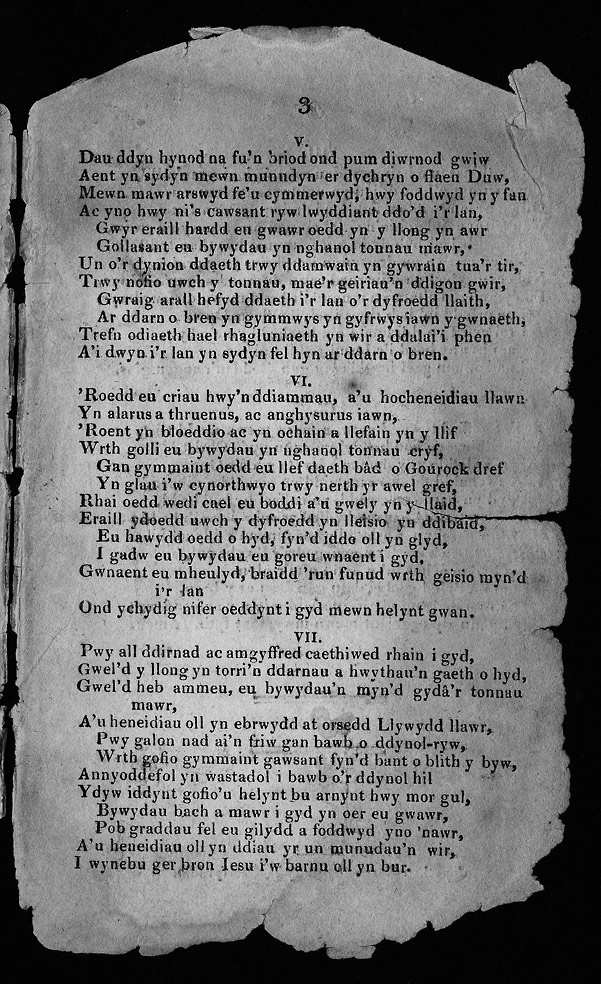 3
V.
Dau ddyn hynod na fu'n briod ond pum diwrnod gwiw
Aent yn sydyn mewn munudyn er dychryn o flaen Duw,
Mewn mawr arswyd fe'u cymmerwyd, hwy foddwyd yn y fan
Ac yno hwy ni's cawsant ryw lwyddiant ddo'd i'r lan,
Gwyr eraill hardd eu gwawr oedd yn y llong yn awr
Gollasant eu bywydau yn nghanol tonnau mawr,
Un o'r dynion ddaeth trwy ddamwain yn gywrain tua'r tir,
Trwy nofio uwch y tonnau, mae'r geiriau'n ddigon gwir,
Gwraig arall hefyd ddaeth i'r lan o'r dyfroedd llaith,
Ar ddarn o bren yn gymmwys yn gyfrwys iawn y gwnaeth,
Trefn odiaeth hael rhagluniaeth yn wir a ddalai'i phen
A'i dwyn i'r lan yn sydyn fel hyn ar ddarn o bren.
VI.
'Roedd eu criau hwy'n ddiammau, a'u hocheneidiau llawn
Yn alarus a thruenus, ac anghysurus iawn,
'Roent yn bloeddio ac yn ochain a llefain yn y llif
Wrth golli eu bywydau yn nghanol tonnau cryf,
Gan gymmaint oedd eu llef daeth bâd o Gourock dref
Yn glau i'w cynorthwyo trwy nerth yr awel gref,
Rhai oedd wedi cael eu boddi a'u gwely yn y llaid,
Eraill ydoedd uwch y dyfroedd yn lleisio yn ddibaid,
Eu hawydd oedd o hyd, fyn'd iddo oll yn glyd,
I gadw eu bywydau eu goreu wnaent i gyd,
Gwnaent eu mheulyd, braidd 'run funud wrth geisio myn'd
i'r lan
Ond ychydig nifer oeddynt i gyd mewn helynt gwan.
VII.
Pwy all ddirnad ac amgyffred caethiwed rhain i gyd,
Gwel'd y llong yn torri'n ddarnau a hwythau'n gaeth o hyd,
Gwel'd heb ammeu, eu bywydau'n myn'd gydâ'r tonnau
mawr,
A'u heneidiau oll yn ebrwydd at orsedd Llywydd llawr,
Pwy galon nad ai'n friw gan bawb o ddynol-ryw,
Wrth gofio gymmaint gawsant fyn'd bant o blith y byw,
Annyoddefol yn wastadol i bawb o'r ddynol hil
Ydyw iddynt gofio'u helynt bu arnynt hwy mor gul,
Bywydau bach a mawr i gyd yn oer eu gwawr,
Pob graddau fel eu gilydd a foddwyd yno 'nawr,
A'u heneidiau oll yn ddiau yr un munudau'n wir,
I wynebu ger bron Iesu i'w barnu oll yn bur.